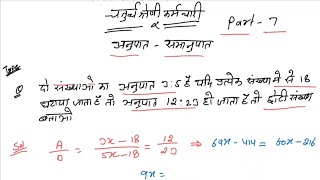 चतुर्थ श्रेणी कर्मचारी
&
अनुपात - समानुपात
Part - 7
Type
Q दो संख्याओ का अनुपात 3:5 है यदि प्रत्येक संख्या मे से 18
घटाया जाता है तो अनुपात 12:23 हो जाता है तो छोटी संख्या
बताओ
Sol A/B = 3x-18/5x-18 = 12/23 ⇒ 69x - 414 = 60x - 216
9x =